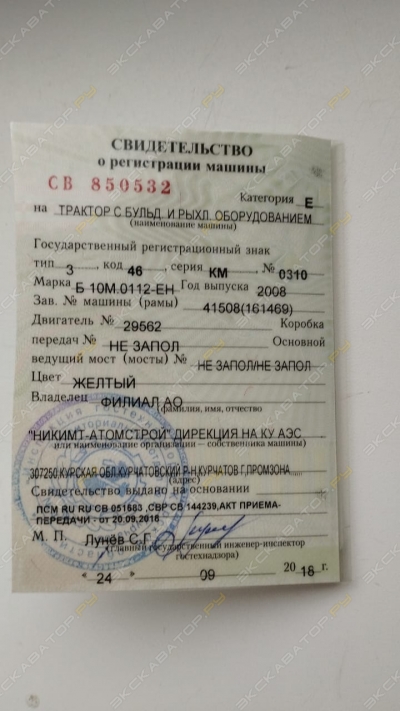 СВИДЕТЕЛЬСТВО
о регистрации машины
СВ 850532
Категория Е
на ТРАКТОР С БУЛЬД. И РЫХЛ. ОБОРУДОВАНИЕМ
(наименование машины)
Государственный регистрационный знак
тип 3, код 46, серия КМ, № 0310
Марка Б 10М.0112-ЕН Год выпуска 2008
Зав. № машины (рамы) 41508(161469)
Двигатель № 29562 Коробка
передач № НЕ ЗАПОЛ Основной
ведущий мост (мосты) № НЕ ЗАПОЛ/НЕ ЗАПОЛ
Цвет ЖЕЛТЫЙ
Владелец ФИЛИАЛ АО
(фамилия, имя, отчество
"НИКИМТ-АТОМСТРОЙ" ДИРЕКЦИЯ НА КУ АЭС
или наименование организации – собственника машины)
307250,КУРСКАЯ ОБЛ,КУРЧАТОВСКИЙ Р-Н,КУРЧАТОВ Г,ПРОМЗОНА,,,,,
(адрес)
Свидетельство выдано на основании
ПСМ RU RU СВ 051683 ,СВР СВ 144239,АКТ ПРИЕМА-
ПЕРЕДАЧИ - от 20.09.2018
М. П. Лунёв С.Г.
(главный государственный инженер-инспектор
гостехнадзора)
" 24 " 09 2018 г.
ЭКСКАВАТОР.РУ